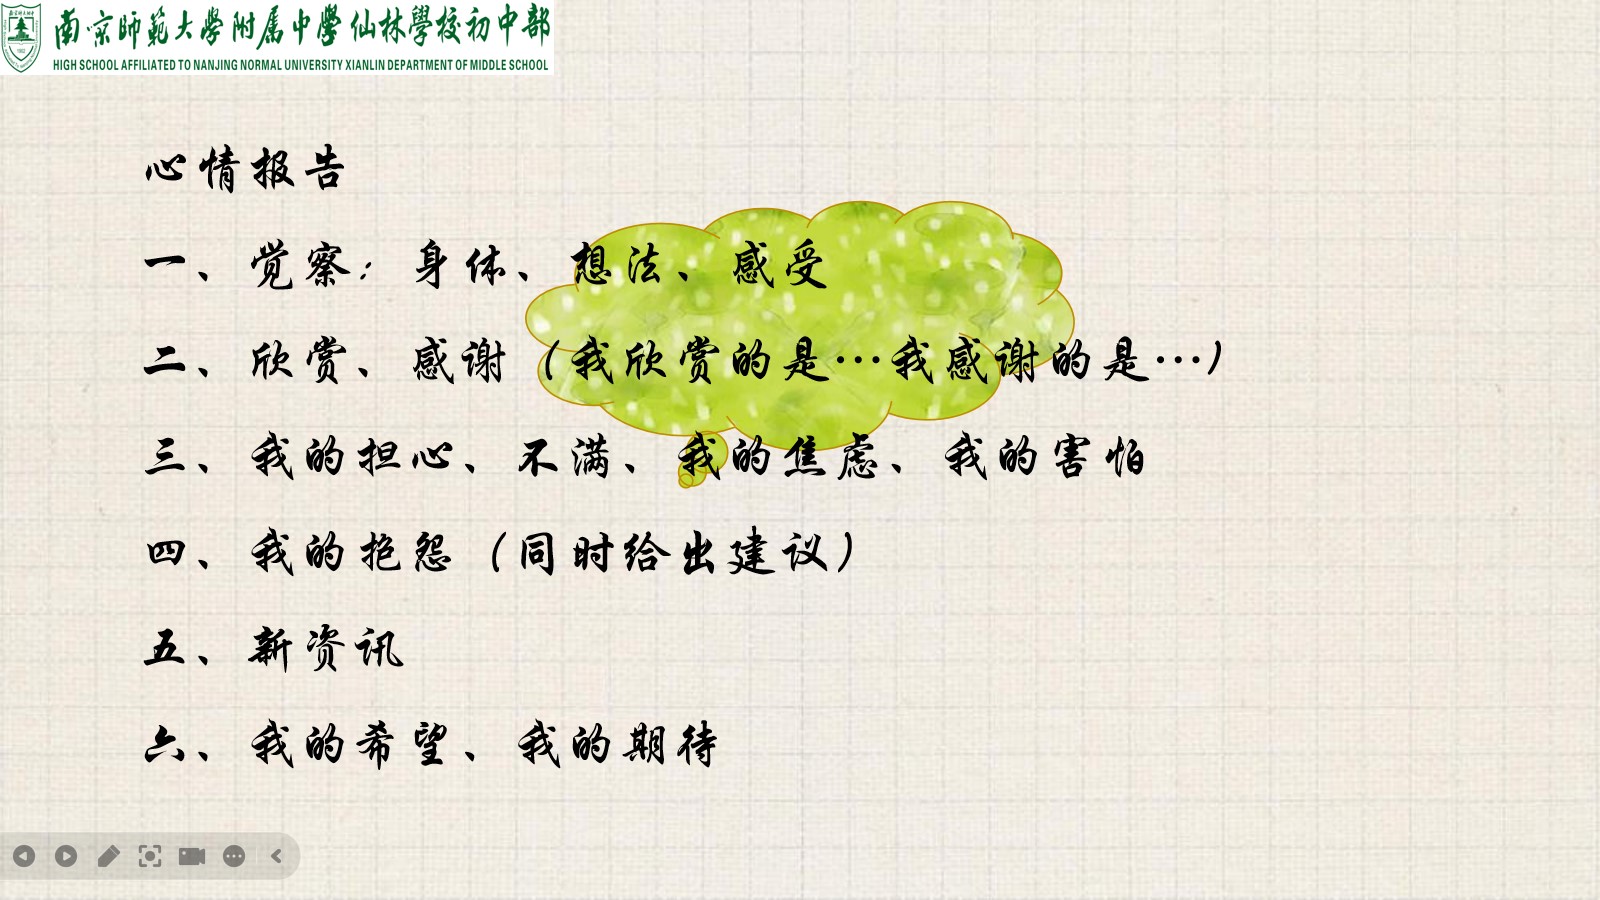 南京师范大学附属中学仙林学校初中部
HIGH SCHOOL AFFILIATED TO NANJING NORMAL UNIVERSITY XIANLIN DEPARTMENT OF MIDDLE SCHOOL
心情报告
一、觉察：身体、想法、感受
二、欣赏、感谢（我欣赏的是…我感谢的是…）
三、我的担心、不满、我的焦虑、我的害怕
四、我的抱怨（同时给出建议）
五、新资讯
六、我的希望、我的期待